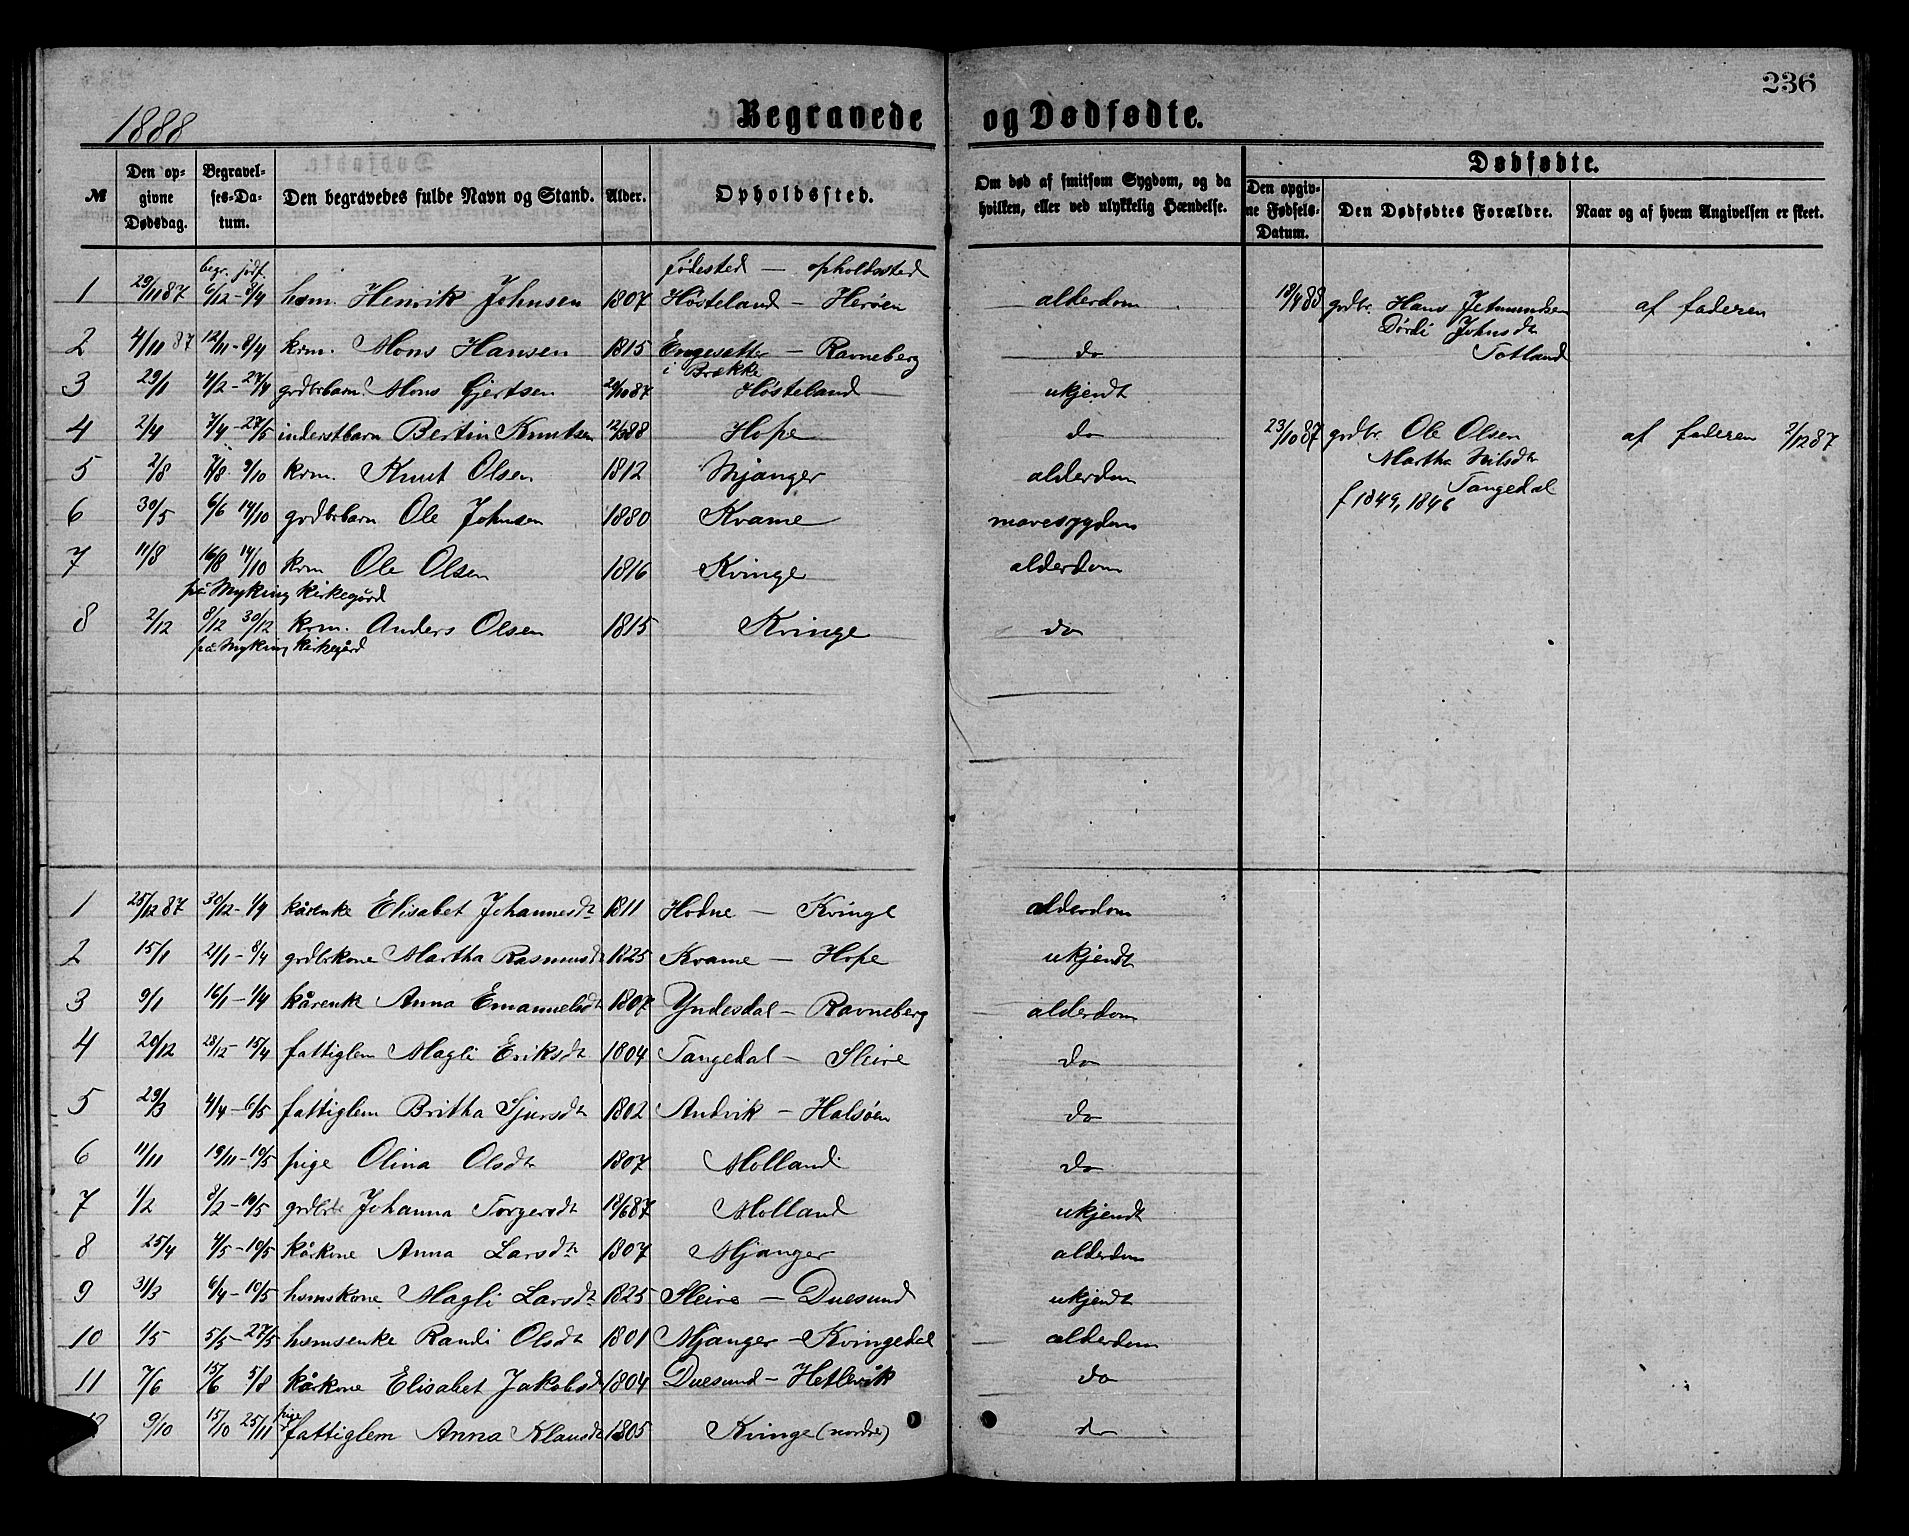 236
1888 Begravede og Dødfødte.
№ Den opgivne Dødsdag. Begravelses-Datum. Den begravedes fulde Navn og Stand. Alder. Opholdssted. Om død af smitsom Sygdom, og da hvilken, eller ved ulykkelig Hændelse. Dødfødte. Den opgivne Fødsels-Datum. Den Dødfødtes Forældre. Naar og af hvem Angivelsen er skeet.
begr. jodf. fødested — opholdssted
1 29/11 87 6/12 - 8/4 hsm. Henrik Johnsen 1807 Høsteland — Herøen alderdom 18/4 88 grdbr. Hans Jetmundsen af faderen
Dordi Johnsdt
2 4/11 87 12/11 - 8/4 krm. Mons Hansen 1815 Engesætter — Ravneberg do Totland
i Brække
3 29/1 4/2 - 27/4 grdbrbarn Mons Gjertsen 20/10 87 Høsteland ukjendt
4 2/4 7/4 - 27/5 inderstbarn Bertin Knutsen 12/3 88 Hope do 23/10 87 grdbr. Ole Olsen af faderen 2/12 87
Martha Nilsdt
5 2/8 7/8 9/10 krm. Knut Olsen 1812 Mjanger alderdom Tangedal
f 1849, 1846
6 30/5 6/6 14/10 grdbrbarn Ole Johnsen 1880 Kvame mavesygdom
7 11/8 16/8 14/10 krm Ole Olsen 1816 Kvinge alderdom
på Myking kirkegård
8 2/12 8/12 30/12 krm. Anders Olsen 1815 Kvinge do
på Myking kirkegård
1 25/12 87 30/12 - 1/4 kårenke Elisabet Johannesdt 1811 Hodne — Kvinge alderdom
2 15/1 21/1 - 8/4 grdbrkone Martha Rasmusdt 1825 Kvame — Hope ukjendt
3 9/1 16/1 - 1/4 kårenk Anna Emanuelsdt 1807 Yndesdal — Ravneberg alderdom
4 20/12 28/12 - 15/4 fattiglem Magli Eriksdt 1804 Tangedal — Sleire do
5 29/3 4/4 - 6/5 fattiglem Britha Sjursdt 1802 Andvik — Halsøen do
6 11/11 19/11 - 10/5 pige Olina Olsdt 1807 Molland do
7 1/2 8/2 - 10/5 Johanna Torgersdt 18/6 87 Molland ukjendt
8 25/4 4/5 - 10/5 kårkone Anna Larsdt 1807 Mjanger alderdom
9 31/3 6/4 - 10/5 hsmskone Magli Larsdt 1825 Sleire — Duesund ukjendt
10 1/5 5/5 - 27/5 hsmsenke Randi Olsdt 1801 Mjanger — Kvingedal alderdom
11 7/6 15/6 5/8 kårkone Elisabet Jakobsdt 1804 Duesund — Hetlevik do
pige
9/10 15/10 25/11 fattiglem Anna Klausdt 1805 Kvinge (nordre) do